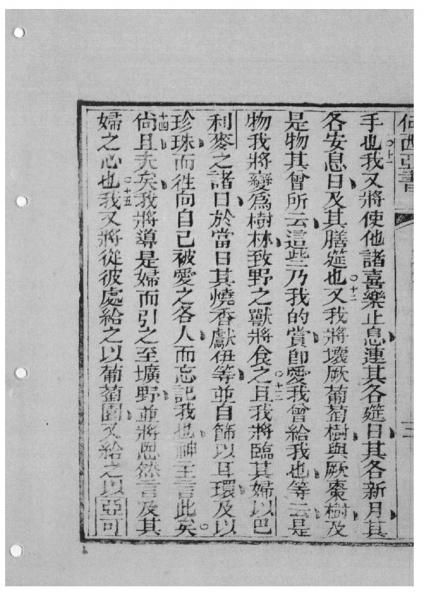 何西亞書 二
手也○十一我又將使他諸喜樂止息連其各筵日其各新月其
各安息日及其膳筵也○十二又我將壞厥葡萄樹與厥棗樹及
是物其曾所云這些乃我的賞卽愛我曾給我也等云是
物我將變爲樹林致野之獸將食之○十三且我將臨其婦以巴
利麥之諸日於當日其燒香獻伊等並自篩以耳環及以
珍珠而徃向自己被愛之各人而忘記我也神主言此矣○
十四尙且夫矣我將導是婦而引之至壙野並將慰然言及其
婦之心也○十五我又將從彼處給之以葡萄園又給之以亞可